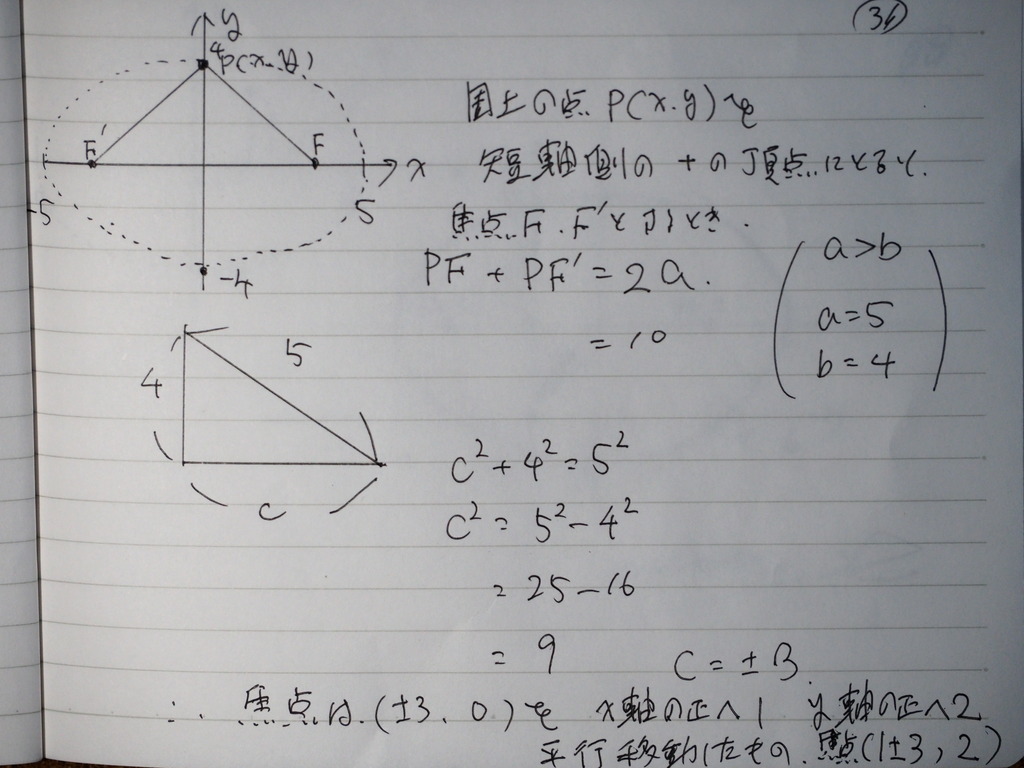 (36)
y
4 P(x.y)
F'
F
x
-5
5
-4
図上の点 P(x.y)を
短軸側の+の頂点にとると.
焦点F.F'とするとき.
PF + PF' = 2a.
= 10
a>b
a=5
b=4
4
5
c
c²+4²=5²
c²=5²-4²
= 25-16
= 9
c = ±3.
∴ 焦点は.(±3.0)を x軸の正へ1 y軸の正へ2
平行移動したもの.焦点(1±3,2)